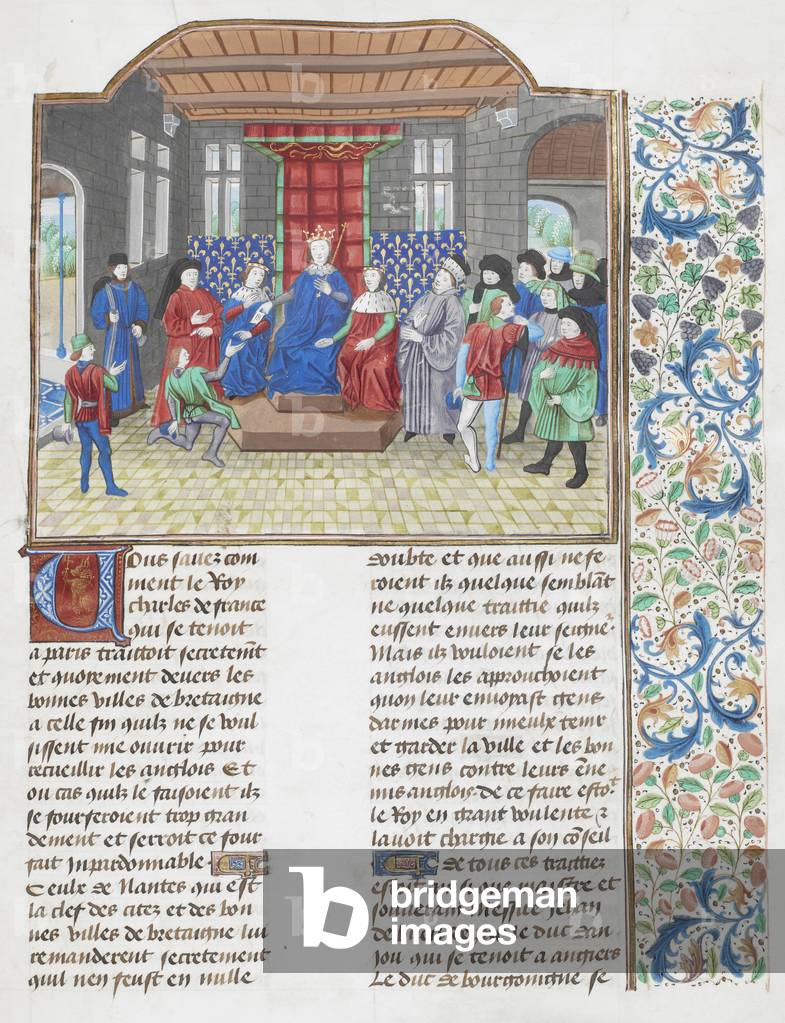 Vous sauez com
ment le Roy
charles de france
qui se tenoit
a paris traittoit secretemt
et quoyement deuers les
bonnes villes de bretaigne
a celle fin quilz ne se voul
sissent mie ouurir pour
recueillir les anglois Et
ou cas quilz le faisoient ilz
se fourferoient trop gran
dement et serroit ce four
fait Inpardonnable
Ceulx de Nantes qui est
la clef des citez et des bon
nes villes de bretaigne lui
remanderent secretement
quil nen feust en nulle
doubte et que aussi ne fe
roient ilz quelque semblāt
ne quelque traittie quilz
eussent enuers leur seigneʳ
Mais ilz vouloient se les
anglois les approuchoient
quon leur enuoyast gens
darmes pour mieulx tenir
et garder la ville et les bon
nes gens contre leurs ēne
mis anglois. de ce faire estoᵗ
le Roy en grant voulente &
lauoit chargie a son cōseil
De tous ces traittiez
et
Jehan
de duc dan
Jou qui se tenoit a angiers
Le duc de bourgoingne se
b bridgeman
images